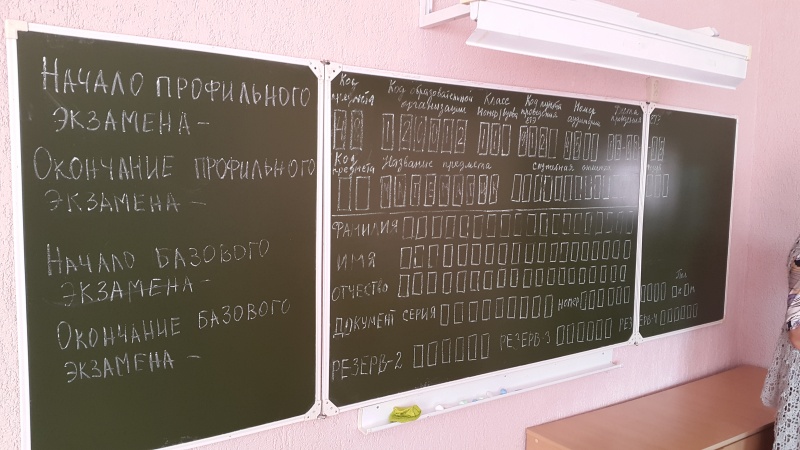 НАЧАЛО ПРОФИЛЬНОГО
ЭКЗАМЕНА –
ОКОНЧАНИЕ ПРОФИЛЬНОГО
ЭКЗАМЕНА –
НАЧАЛО БАЗОВОГО
ЭКЗАМЕНА –
ОКОНЧАНИЕ БАЗОВОГО
ЭКЗАМЕНА –
Код предмета
Код образовательной организации
Класс
Номер Буква
Код пункта проведения ЕГЭ
Номер аудитории
Код предмета
Название предмета
ФАМИЛИЯ
ИМЯ
ОТЧЕСТВО
Пол
ДОКУМЕНТ СЕРИЯ НОМЕР
РЕЗЕРВ-2 РЕЗЕРВ-3 РЕЗЕРВ-4